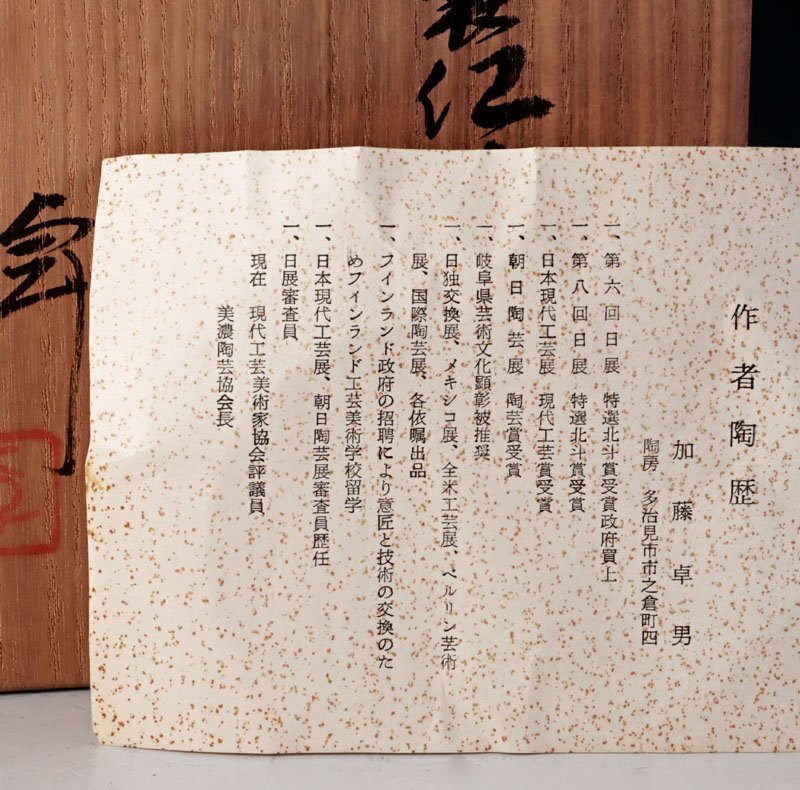 作者陶歴
加藤卓男
陶房 多治見市市之倉町四
一、第六回日展 特選北斗賞受賞政府買上
一、第八回日展 特選北斗賞受賞
一、日本現代工芸展 現代工芸賞受賞
一、朝日陶芸展 陶芸賞受賞
一、岐阜県芸術文化顕彰被推奨
一、日独交換展、メキシコ展、全米工芸展、ベルリン芸術
展、国際陶芸展、各依嘱出品
一、フインランド政府の招聘により意匠と技術の交換のた
めフインランド工芸美術学校留学
一、日本現代工芸展、朝日陶芸展審査員歴任
一、日展審査員
現在 現代工芸美術家協会評議員
美濃陶芸協会長